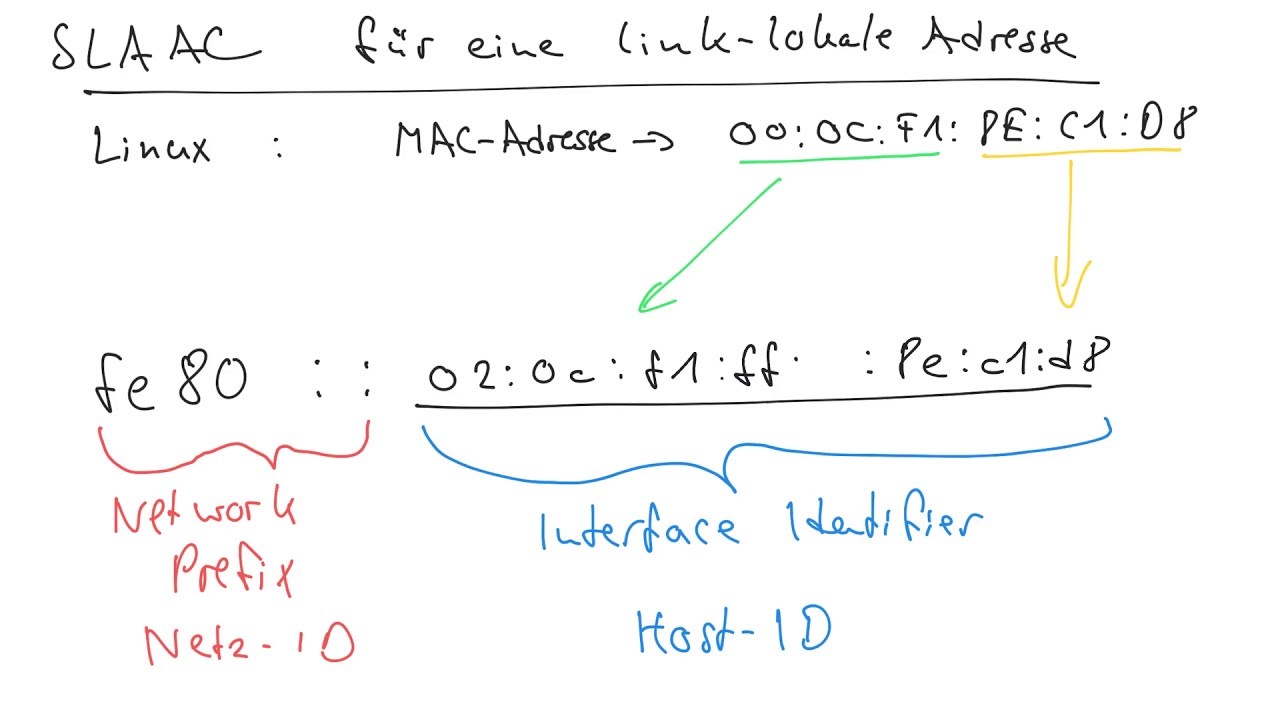 SLAAC für eine link-lokale Adresse
Linux : MAC-Adresse → 00:0C:F1:8E:C1:D8
fe80 :: 02:0c:f1:ff: :8e:c1:d8
Network Prefix
Netz-ID
Interface Identifier
Host-ID